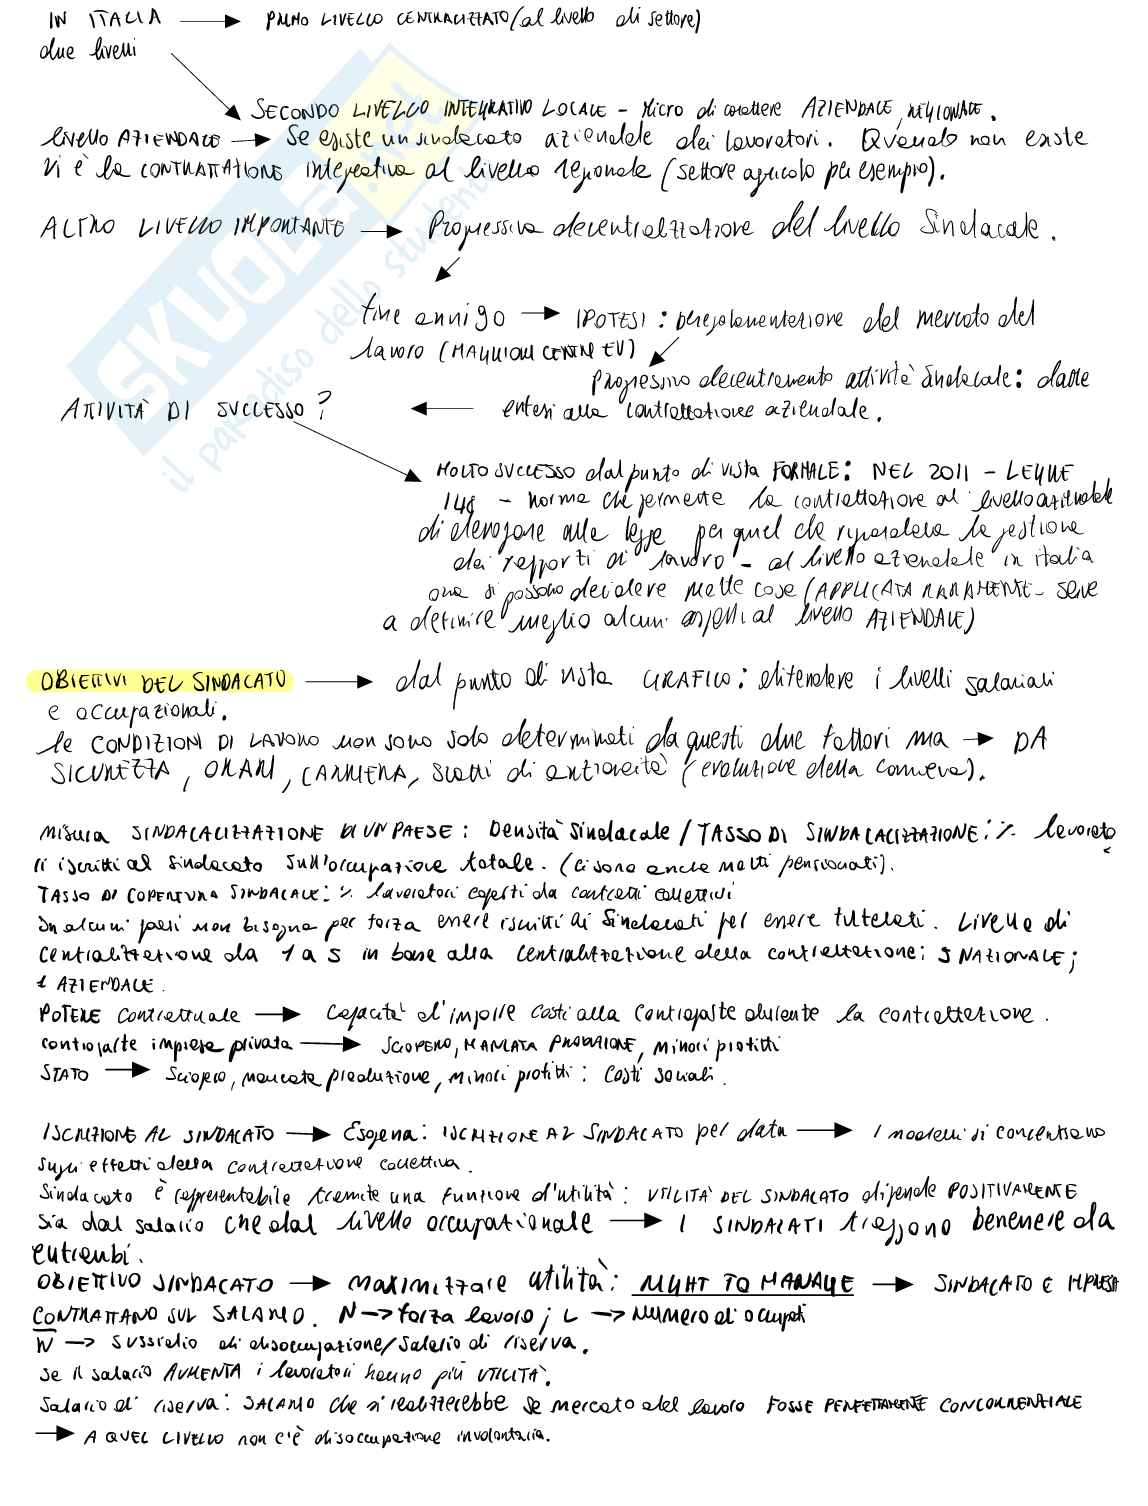 IN ITALIA → PRIMO LIVELLO CENTRALIZZATO (al livello di settore)
due livelli
SECONDO LIVELLO INTEGRATIVO LOCALE - Micro di carattere AZIENDALE, REGIONALE.
livello AZIENDALE → Se esiste un sindacato aziendale dei lavoratori. Quando non esiste
vi è la CONTRATTAZIONE integrativa al livello regionale (settore agricolo per esempio).
ALTRO LIVELLO IMPORTANTE → Progressiva decentralizzazione del livello Sindacale.
fine anni 90 → IPOTESI: deregolamentazione del mercato del
lavoro (MAGGIORI CENTRI EU)
Progressivo decentramento attività Sindacale: dalle
intesi alla contrattazione aziendale.
ATTIVITÀ DI SUCCESSO? ←
MOLTO SUCCESSO dal punto di vista FORMALE: NEL 2011 - LEGGE
148 - norma che permette la contrattazione al livello aziendale
di derogare alle legge per quel che riguardava la gestione
dei rapporti di lavoro - al livello aziendale in italia
ora si possono decidere molte cose (APPLICATA RARAMENTE - serve
a definire meglio alcuni aspetti al livello AZIENDALE)
OBIETTIVI DEL SINDACATO → dal punto di vista GRAFICO: difendere i livelli salariali
e occupazionali.
le CONDIZIONI DI LAVORO non sono solo determinati da questi due fattori ma → DA
SICUREZZA, ORARI, CARRIERA, Scatti di anzianità (evoluzione della carriera).
Misura SINDACALIZZAZIONE DI UN PAESE: Densità Sindacale / TASSO DI SINDACALIZZAZIONE: % lavorato
ri iscritti al Sindacato Sull'occupazione totale. (Ci sono anche molti pensionati).
TASSO DI COPERTURA SINDACALE: % lavoratori coperti da contratti collettivi
In alcuni paesi non bisogna per forza essere iscritti ai Sindacati per essere tutelati. Livello di
Centralizzazione da 1 a 5 in base alla Centralizzazione della contrattazione: 5 NAZIONALE;
1 AZIENDALE.
POTERE Contrattuale → Capacità d'imporre Costi alla Controparte durante la contrattazione.
Controparte impresa privata → SCIOPERO, MANCATA PRODUZIONE, minori profitti
STATO → Sciopero, mancata produzione, minori profitti: Costi sociali.
ISCRIZIONE AL SINDACATO → Esogena: ISCRIZIONE AL SINDACATO per data → I modelli si concentrano
sugli effetti della Contrattazione collettiva.
Sindacato è rappresentabile tramite una funzione d'utilità: UTILITÀ DEL SINDACATO dipende POSITIVAMENTE
sia dal salario che dal livello occupazionale → I SINDACATI traggono benessere da
entrambi.
OBIETTIVO SINDACATO → Massimizzare utilità: RIGHT TO MANAGE → SINDACATO E IMPRESA
CONTRATTANO SUL SALARIO. N → forza lavoro; L → Numero di occupati
W̄ → sussidio di disoccupazione/Salario di riserva.
Se il salario AUMENTA i lavoratori hanno più UTILITÀ.
Salario di riserva: SALARIO che si realizzerebbe se mercato del lavoro FOSSE PERFETTAMENTE CONCORRENZIALE
→ A QUEL LIVELLO non c'è disoccupazione involontaria.
SKUOLA.net
il paradiso dello studente